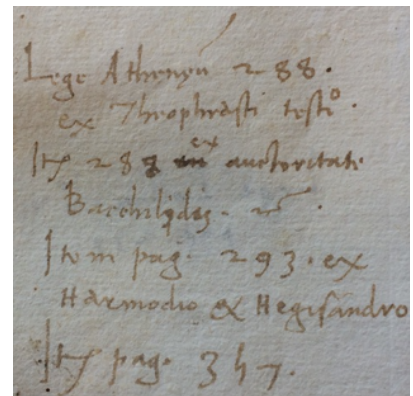 Lege Athenęũ 288.
ex Theophrasti testiᵒ.
Itẽ 287 ex auctoritate
Bacchilydis.
Item pag. 293. ex
Harmodio & Hegisandro
Itẽ pag. 347.